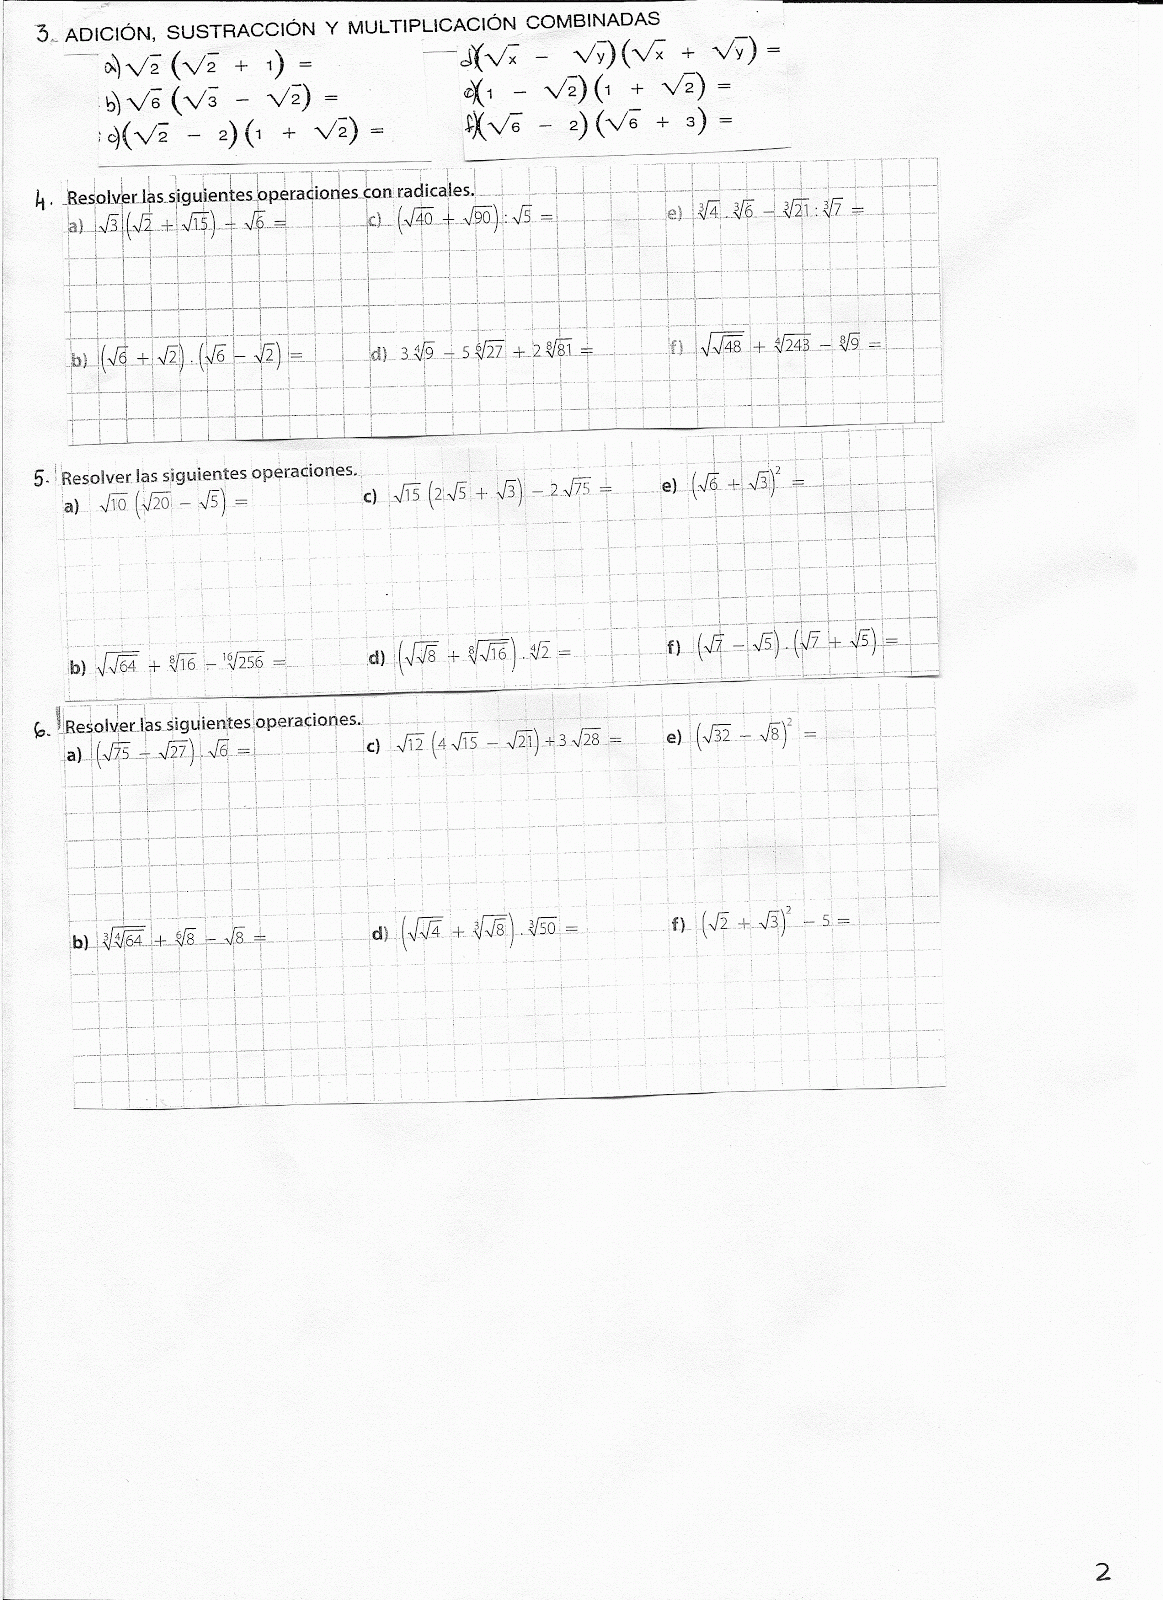 3. ADICIÓN, SUSTRACCIÓN Y MULTIPLICACIÓN COMBINADAS
a) √2 (√2 + 1) =
b) √6 (√3 − √2) =
c) (√2 − 2)(1 + √2) =
d) (√x − √y)(√x + √y) =
e) (1 − √2)(1 + √2) =
f) (√6 − 2)(√6 + 3) =
4. Resolver las siguientes operaciones con radicales.
a) √3 (√2 + √15) − √6 =
c) (√40 + √90) : √5 =
e) ∛4 . ∛6 − ∛21 : ∛7 =
b) (√6 + √2) . (√6 − √2) =
d) 3 ∜9 − 5 ⁶√27 + 2 ⁸√81 =
f) √√48 + ∜243 − ⁸√9 =
5. Resolver las siguientes operaciones.
a) √10 (√20 − √5) =
c) √15 (2 √5 + √3) − 2 √75 =
e) (√6 + √3)² =
b) √√64 + ⁸√16 − ¹⁶√256 =
d) (√√8 + ⁸√√16) . ∜2 =
f) (√7 − √5) . (√7 + √5) =
6. Resolver las siguientes operaciones.
a) (√75 − √27) . √6 =
c) √12 (4 √15 − √21) + 3 √28 =
e) (√32 − √8)² =
b) ∛∜64 + ⁶√8 − √8 =
d) (√√4 + ∛√8) . ∛50 =
f) (√2 + √3)² − 5 =
2